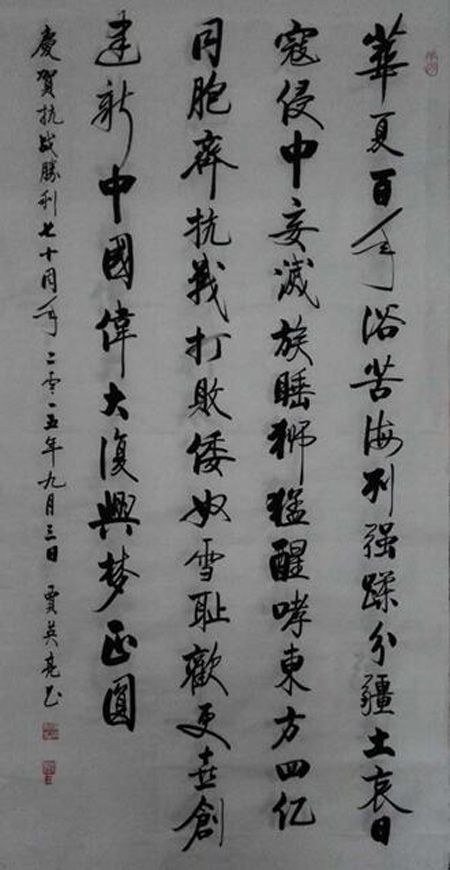 華夏百年浴苦海列强蹂分疆土哀日
寇侵中妄滅族睡狮猛醒哮東方四亿
同胞齊抗戰打敗倭奴雪耻歡更喜創
建新中國偉大復興梦正圓
慶賀抗战勝利七十周年二零一五年九月三日 賈英亮书